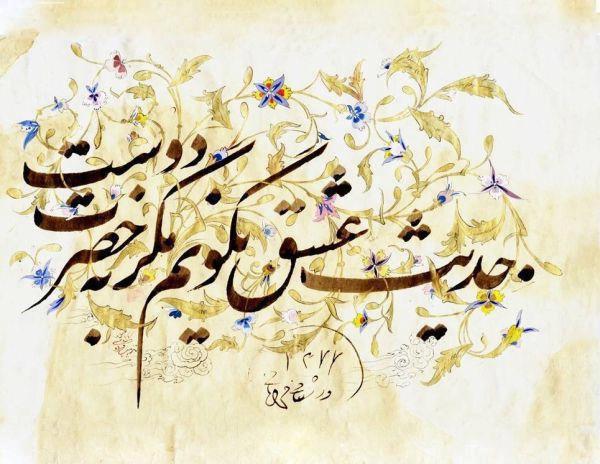 حدیث عشق نگویم مگر به حضرت دوست
۱۳۷۷